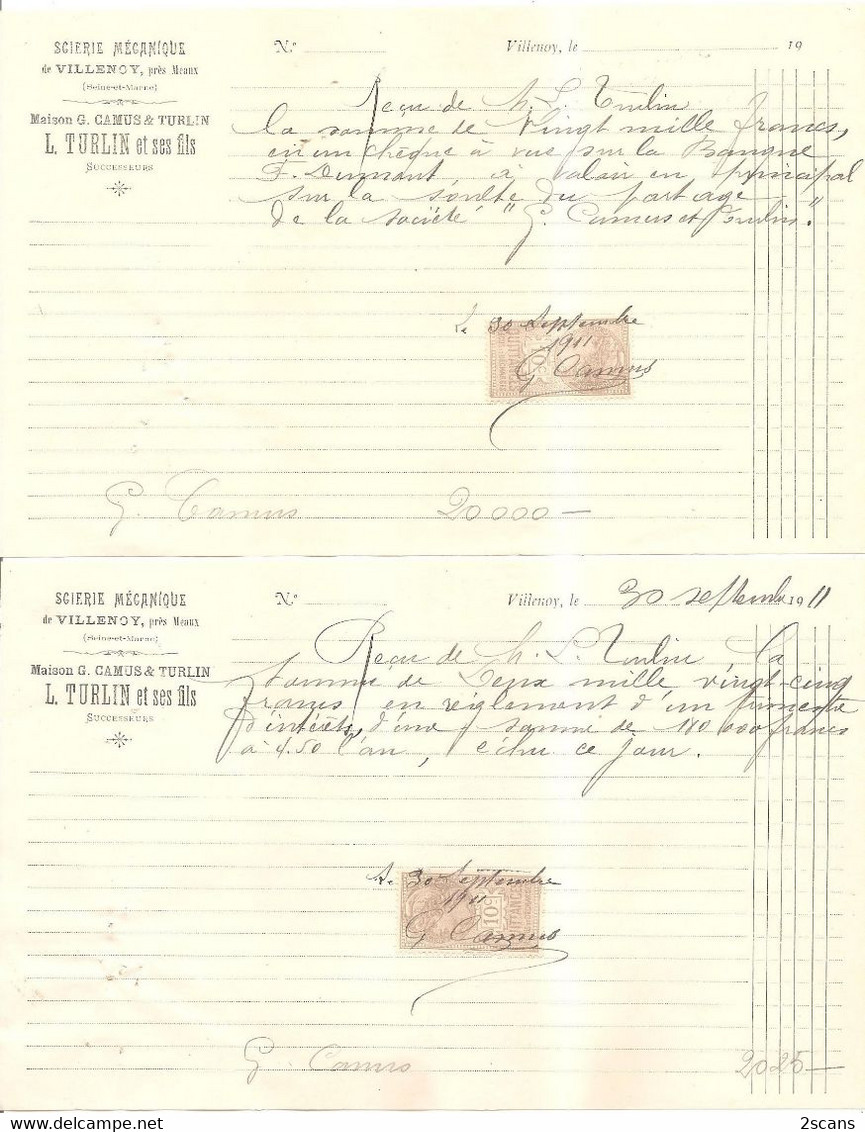 SCIERIE MÉCANIQUE
de VILLENOY, près Meaux
(Seine-et-Marne)
Maison G. CAMUS & TURLIN
L. TURLIN et ses fils
SUCCESSEURS
N.° Villenoy, le 19
Reçu de M. L. Turlin
la somme de Vingt mille francs,
en un chèque à vue sur la Banque
F. Dumont, à valoir en principal
sur la soulte du partage
de la société "G. Camus et Turlin."
Le 30 Septembre
1911
G Camus
G. Camus 20 000 —
SCIERIE MÉCANIQUE
de VILLENOY, près Meaux
(Seine-et-Marne)
Maison G. CAMUS & TURLIN
L. TURLIN et ses fils
SUCCESSEURS
N.° Villenoy, le 30 septembre 1911
Reçu de M. L. Turlin la
somme de Deux mille vingt-cinq
francs en règlement d'un trimestre
d'intérêts, d'une somme de 180 000 francs
à 4.50 l'an, échu ce jour.
Le 30 Septembre
1911
10c
QUITTANCES
G Camus
G. Camus 2025 —
2scans